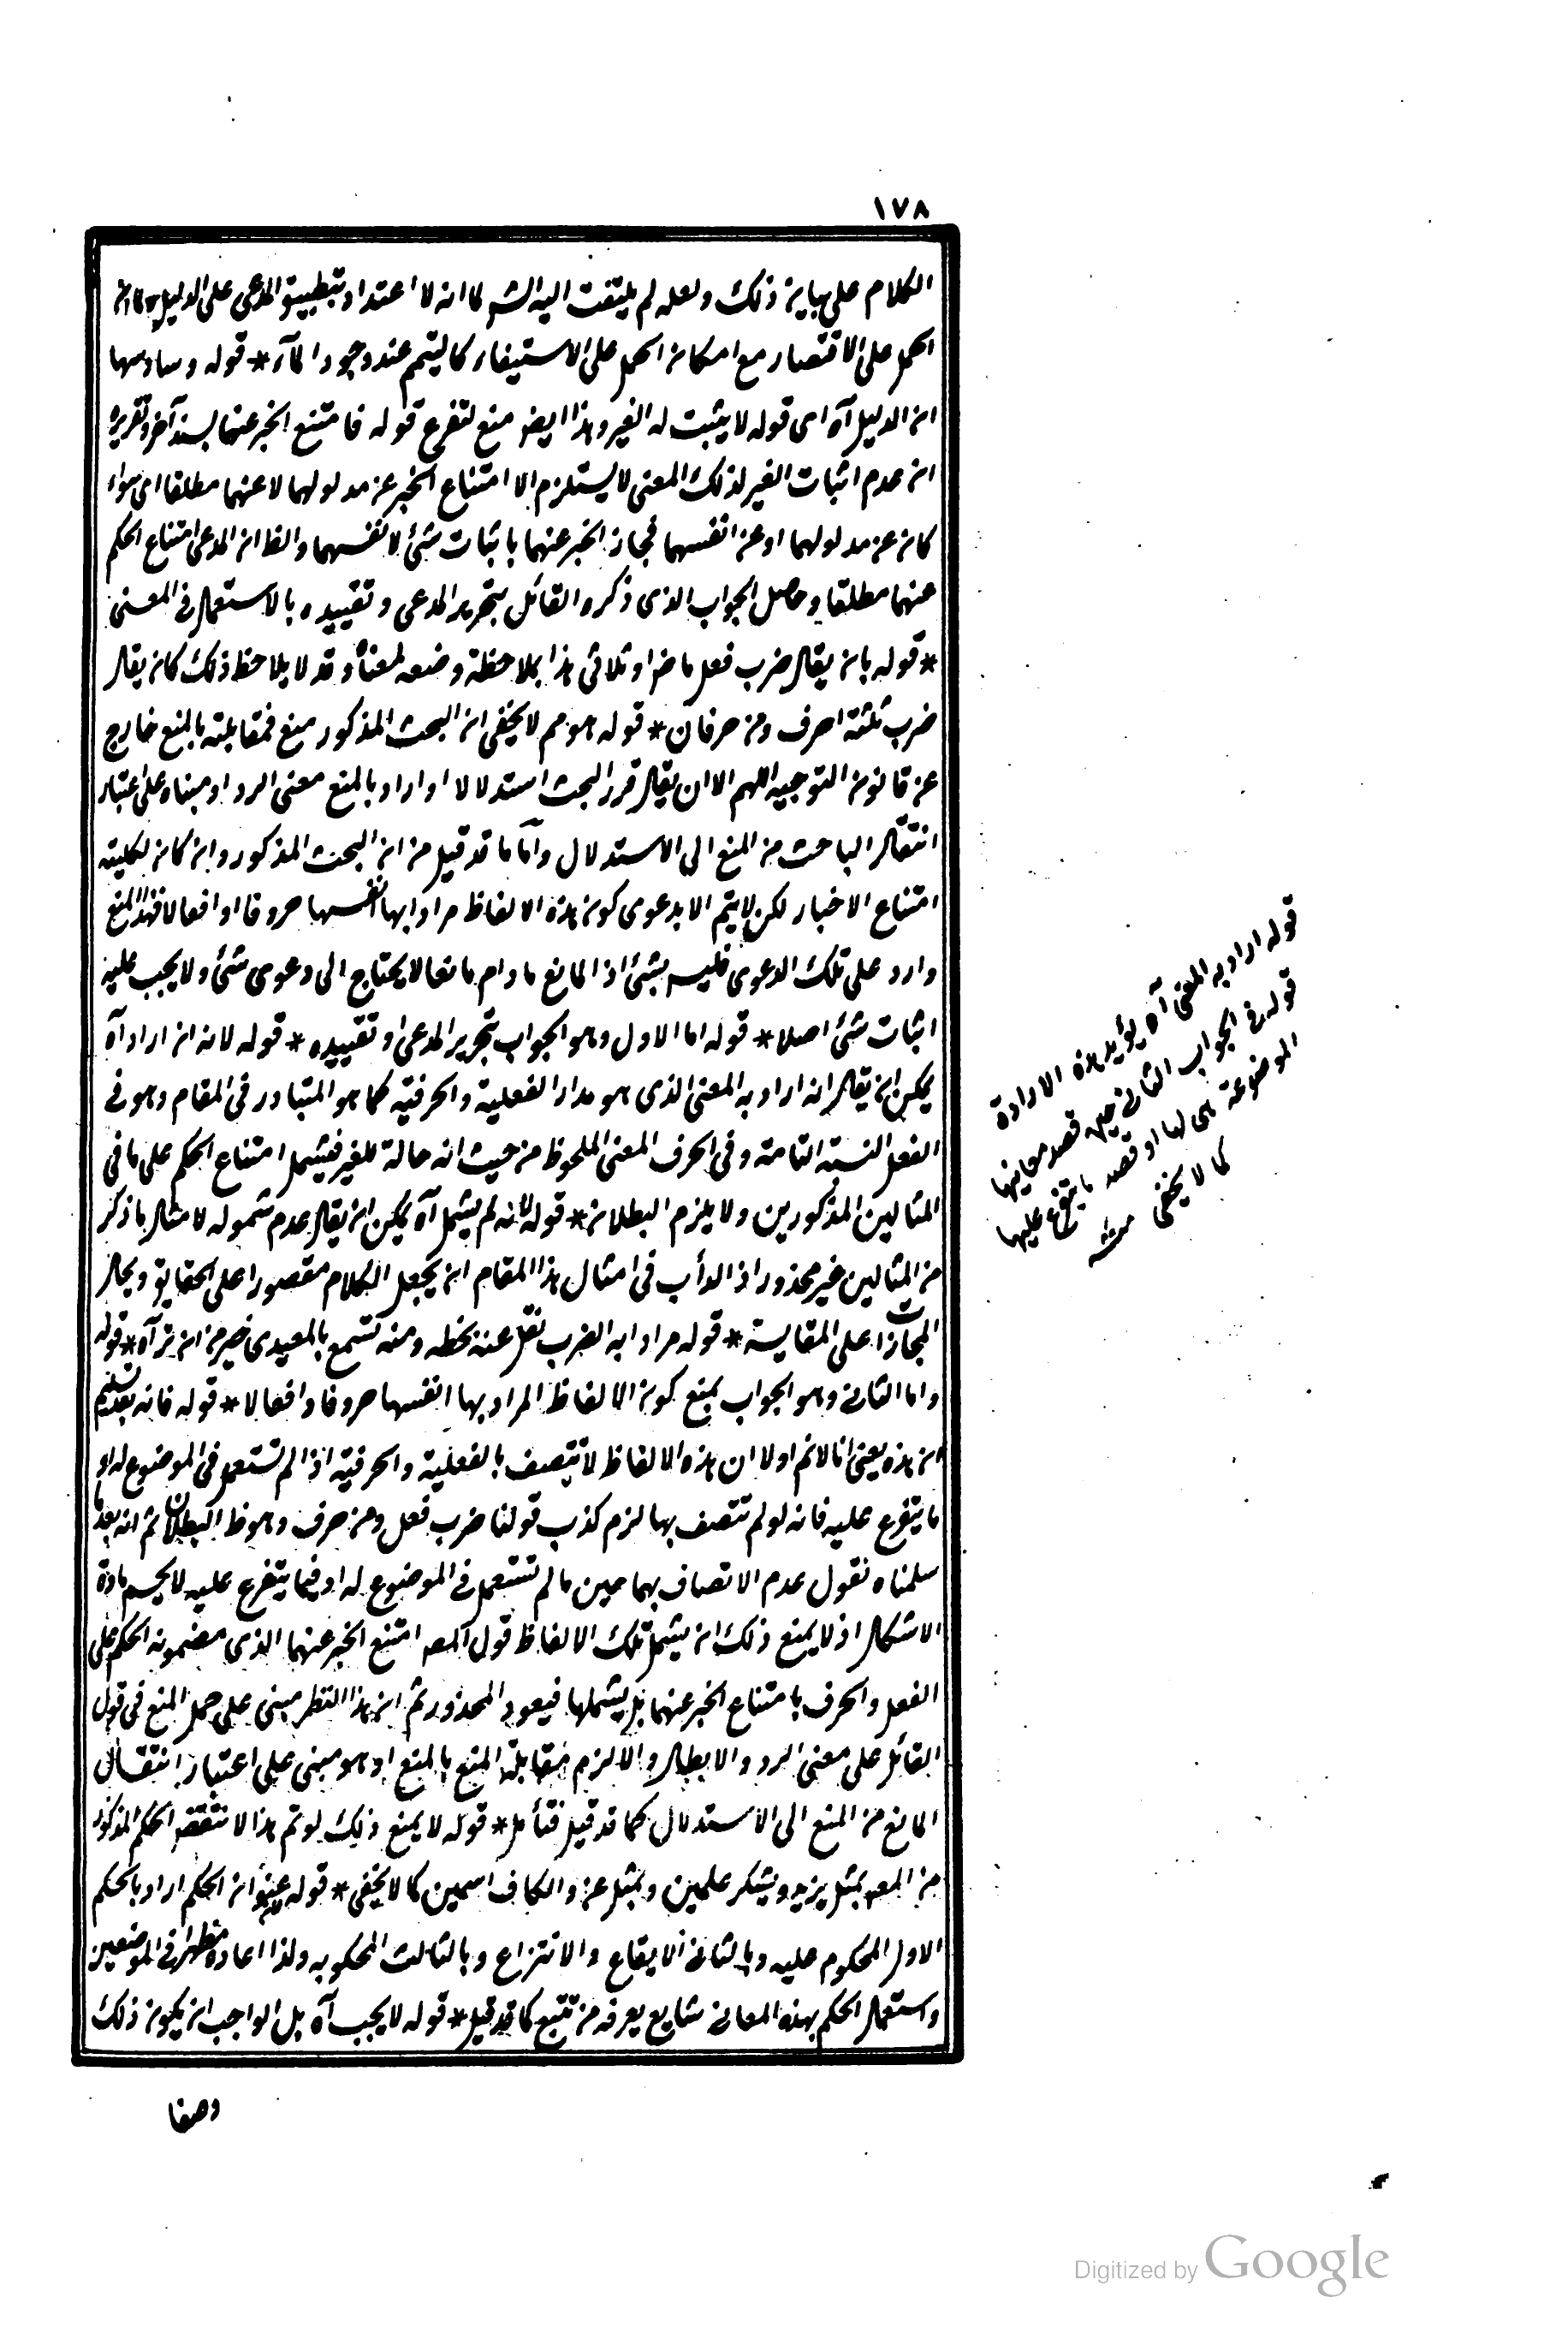 ١٧٨
الكلام على بيان ذلك ولعله لم يلتفت اليه الش لما انه لا اعتداد بتطبيق المدعى على الدليل
الحمل على الاقتصار مع امكان الحمل على الاستيفاء كالتيمم عند وجود الماء * قوله وسادسها
ان الدليل آه اى قوله لا يثبت له الغير وهذا ايض منع لتفرع قوله فامتنع الخبر عنهما بسند آخر وتقريره
ان عدم اثبات الغير لذلك المعنى لا يستلزم الا امتناع الخبر عن مدلولهما لا عنهما مطلقا اى سواء
كان عن مدلولهما او عن انفسهما فجاز الخبر عنهما باثبات شئ لانفسهما والظ ان المدعى امتناع الحكم
عنهما مطلقا وحاصل الجواب الذى ذكره القائل بتحرير المدعى وتقييده بالاستعمال فى المعنى
* قوله بان يقال ضرب فعل ماض او ثلاثى هذا بملاحظة وضعه لمعناه وقد لا يلاحظ ذلك كان يقال
ضرب ثلثة احرف ومن حرفان * قوله هو مم لا يخفى ان البحث المذكور منع فمقابلته بالمنع خارج
عن قانون التوجيه اللهم الا ان يقال قرر البحث استدلالا او اراد بالمنع معنى الرد او مبناه على اعتبار
انتقال الباحث من المنع الى الاستدلال وآما ما قد قيل من ان البحث المذكور وان كان لكليته
امتناع الاخبار لكن لا يتم الا بدعوى كون هذه الالفاظ مرادا بها انفسها حروفا او افعالا فهذا المنع
وارد على تلك الدعوى فليس بشئ اذ المانع ما دام مانعا لا يحتاج الى دعوى شئ ولا يجب عليه
اثبات شئ اصلا * قوله اما الاول وهو الجواب بتحرير المدعى وتقييده * قوله لانه ان اراد آه
يمكن ان يقال انه اراد به المعنى الذى هو مدار الفعلية والحرفية كما هو المتبادر فى المقام وهو فى
الفعل النسبة التامة وفى الحرف المعنى الملحوظ من حيث انه حالة للغير فيشمل امتناع الحكم على ما فى
المثالين المذكورين ولا يلزم البطلان * قوله لانه لم يشمل آه يمكن ان يقال عدم شموله لامثال ما ذكر
من المثالين غير محذور اذ الدأب فى امثال هذا المقام ان يجعل الكلام مقصورا على الحقايق ويحال
المجازات على المقايسة * قوله مرادا به الضرب نقل عنه بخطه ومنه تسمع بالمعيدى خير من ان تراه * قوله
واما الثانى وهو الجواب بمنع كون الالفاظ المراد بها انفسها حروفا وافعالا * قوله فانه بعد تسليم
ان هذه يعنى انا لانم اولا ان هذه الالفاظ لا تتصف بالفعلية والحرفية اذا لم تستعمل فى الموضوع له او
ما يتفرع عليه فانه لو لم تتصف بها لزم كذب قولنا ضرب فعل ومن حرف وهو ظ البطلان ثم انه بعد ما
سلمناه نقول عدم الاتصاف بهما حين ما لم تستعمل فى الموضوع له او فيما يتفرع عليه لا يحسم مادة
الاشكال اذ لا يمنع ذلك ان يشمل تلك الالفاظ قول المص امتنع الخبر عنهما الذى مضمونه الحكم على
الفعل والحرف بامتناع الخبر عنهما بل يشملها فيعود المحذور ثم ان هذا النظر مبنى على حمل المنع فى قول
القائل على معنى الرد والابطال والا لزم مقابلة المنع بالمنع او هو مبنى على اعتبار انتقال
المانع من المنع الى الاستدلال كما قد قيل فتأمل * قوله لا يمنع ذلك لو تم هذا لانتقض الحكم المذكور
من المص بمثل يزيد ويشكر علمين وبمثل عن والكاف اسمين كما لا يخفى * قوله ان الحكم اراد بالحكم
الاول المحكوم عليه وبالثانى الايقاع والانتزاع وبالثالث المحكوم به ولذا اعاده مظهرا فى الموضعين
واستعمال الحكم بهذه المعانى شايع يعرفه من تتبع كما قد قيل * قوله لا يجب آه بل الواجب ان يكون ذلك
وصفا
قوله اراد به المعنى آه يؤيد هذه الارادة
قوله فى الجواب الثانى حين قصد معانيها
الموضوعة هى لها او قصد ما يتفرع عليها
كما لا يخفى منه
Digitized by Google